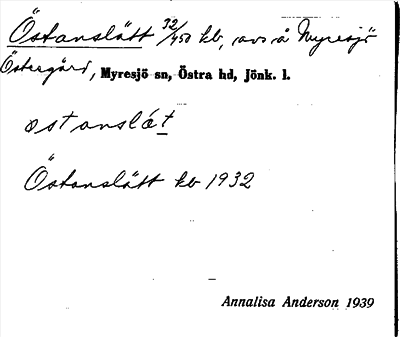 Östanslätt 32/450 kb, avs å Myresjö
Östergård, Myresjö sn, Östra hd, Jönk. l.
östanslǽt
Östanslätt kb 1932
Annalisa Anderson 1939